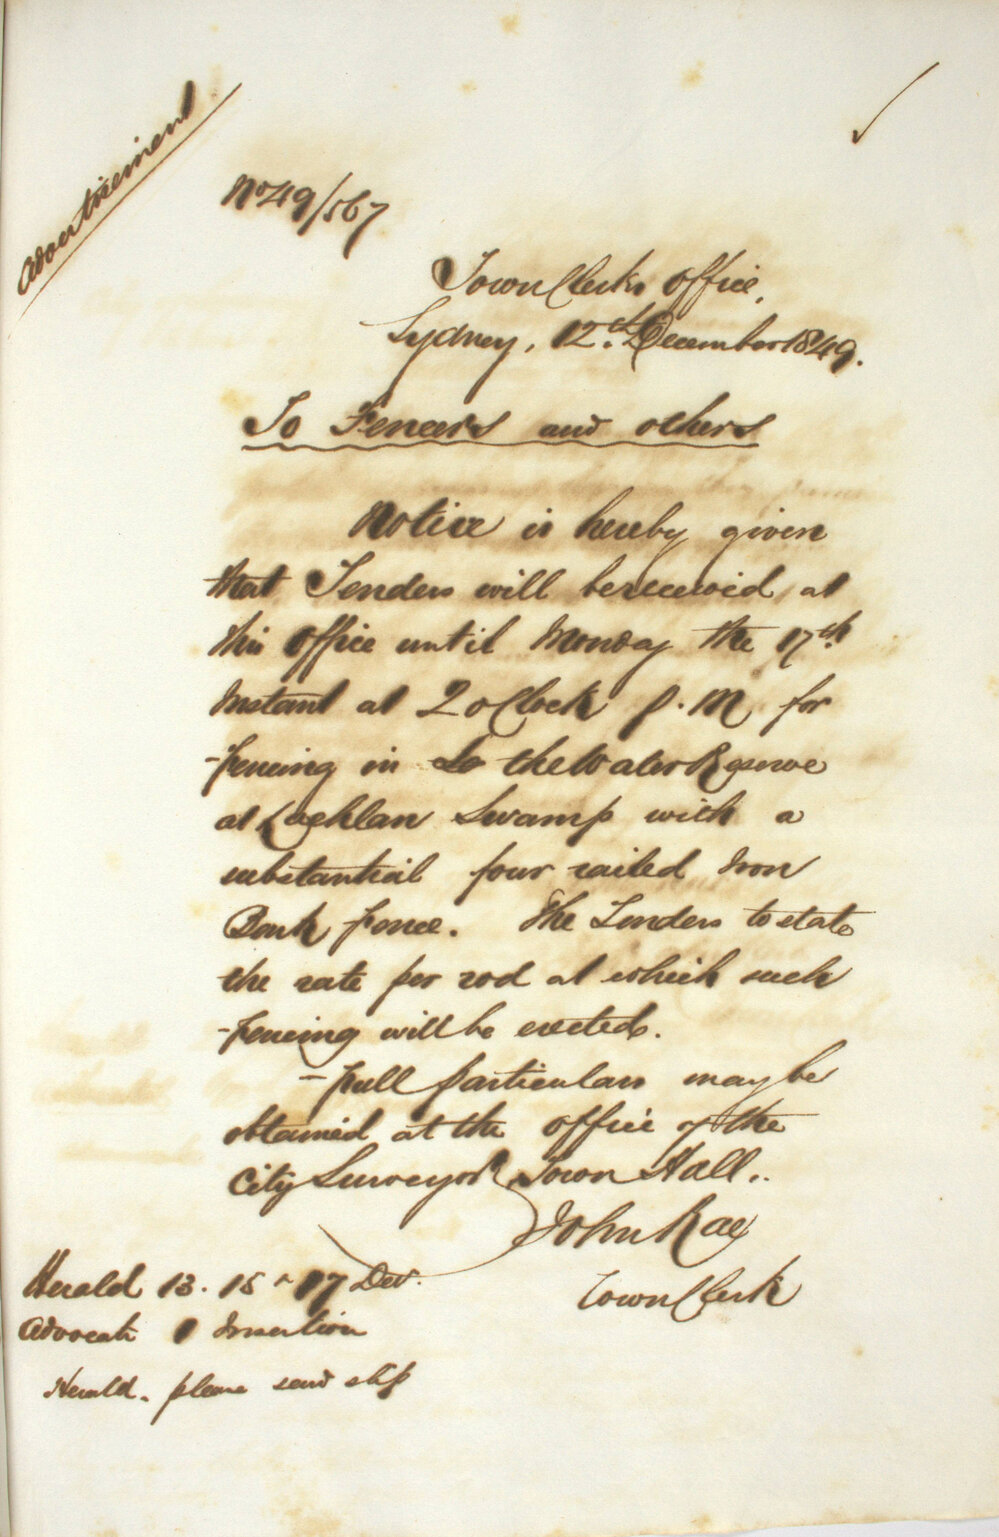 Advertisement
No 49/567
Town Clerks Office,
Sydney, 12th December 1849.
To Fencers and others
Notice is hereby given
that Tenders will be received at
this Office until Monday the 17th
Instant at 2 o Clock P.M. for
fencing in the Water Reserve
at Lachlan Swamp with a
substantial four railed Iron
Bark fence. The Tenders to state
the rate per rod at which such
fencing will be erected.
Full particulars may be
obtained at the office of the
City Surveyor Town Hall.
John Rae
Town Clerk
Herald 13. 15 & 17 Dec.
Advocate 1 Insertion
Herald. please send slip